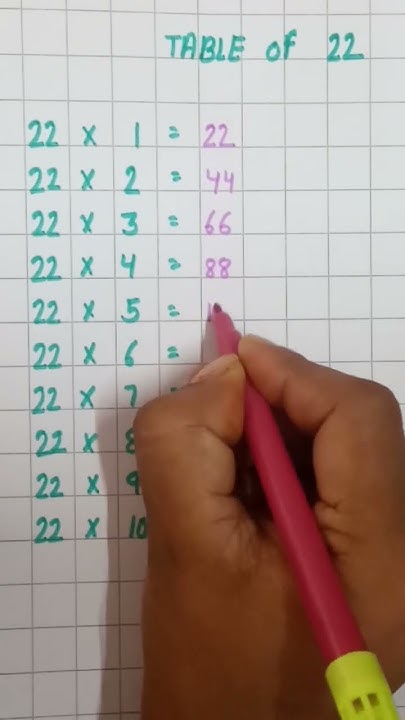 TABLE of 22
22 x 1 = 22
22 x 2 = 44
22 x 3 = 66
22 x 4 = 88
22 x 5 = 1
22 x 6 =
22 x 7 =
22 x 8
22 x 9
22 x 10